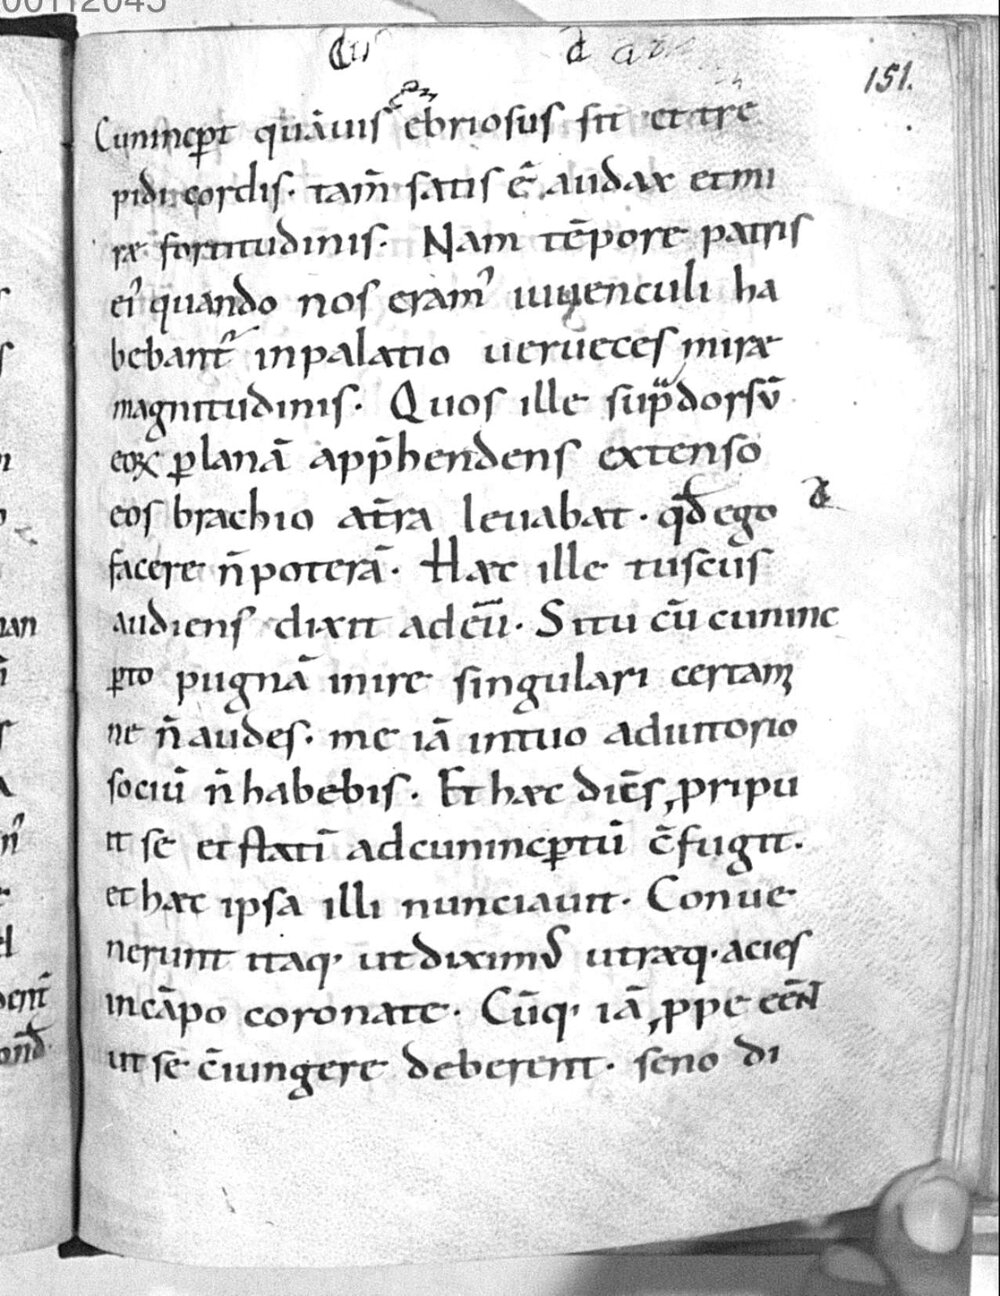 151.
Cunincꝑt quāuis ebriosus sit et tre
pidi cordis. tam̄ satis ē audax et mi
ræ fortitudinis. Nam tēpore patris
ei' quando nos eram' iuuenculi ha
bebant' in palatio uerueces miræ
magnitudinis. Quos ille sup dorsū
eoꝝ ꝑ lanā app̄hendens extenso
eos brachio at̄ra leuabat. qd̄ ego
facere n̄ poterā. Hæc ille tuscus
audiens dixit ad eū. Si tu cū cuninc
ꝑto pugnā inire singulari certam
ne n̄ audes. me iā in tuo adiutorio
sociū n̄ habebis. Et hæc dicēs, ꝓripu
it se et statī ad cunincꝑtū c̄fugit.
et hæc ipsa illi nunciauit. Conue
nerunt itaq. ut diximus utræq. acies
in cāpo coronate. Cūq. iā ꝓpe eēnt
ut se c̄iungere deberent. seno di